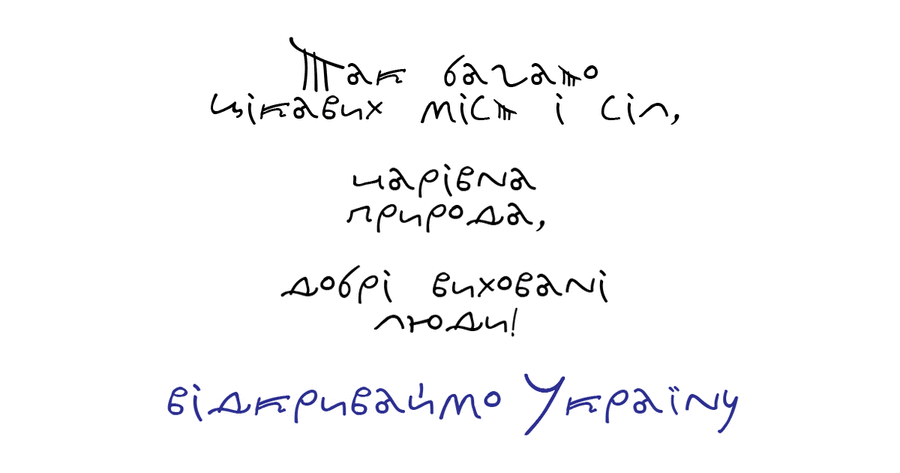 Так багато
цікавих міст і сіл,
чарівна
природа,
добрі виховані
люди!
відкриваймо Україну